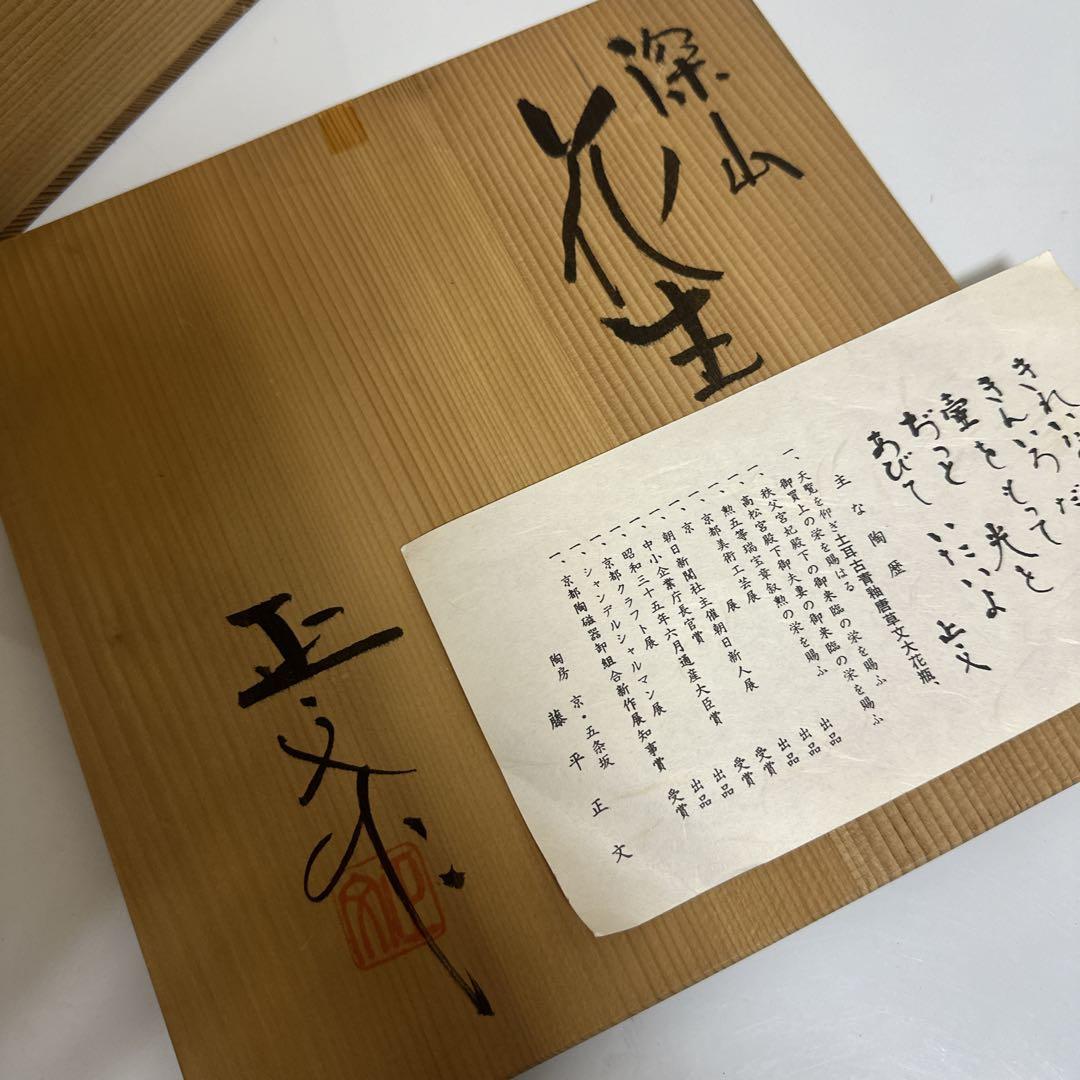 深山
花生
正文作
きれいだ
きんいろ
をもって
壷と光と
ぢっと
あびて
いたいよ
正文
主な陶歴
一、天覧を仰ぎ土耳古青釉唐草文大花瓶、
御買上の栄を賜はる
一、秩父宮妃殿下の御来臨の栄を賜ふ
一、高松宮殿下御夫妻の御来臨の栄を賜ふ
一、勲五等瑞宝章叙勲の栄を賜ふ
一、京都美術工芸展 出品
一、京展 出品
一、朝日新聞社主催朝日新人展 出品
一、中小企業庁長官賞 受賞
一、昭和三十五年六月通産大臣賞 受賞
一、京都クラフト展 出品
一、シャンデルシャルマン展 出品
一、京都陶磁器卸組合新作展知事賞 受賞
陶房 京・五条坂
藤平正文